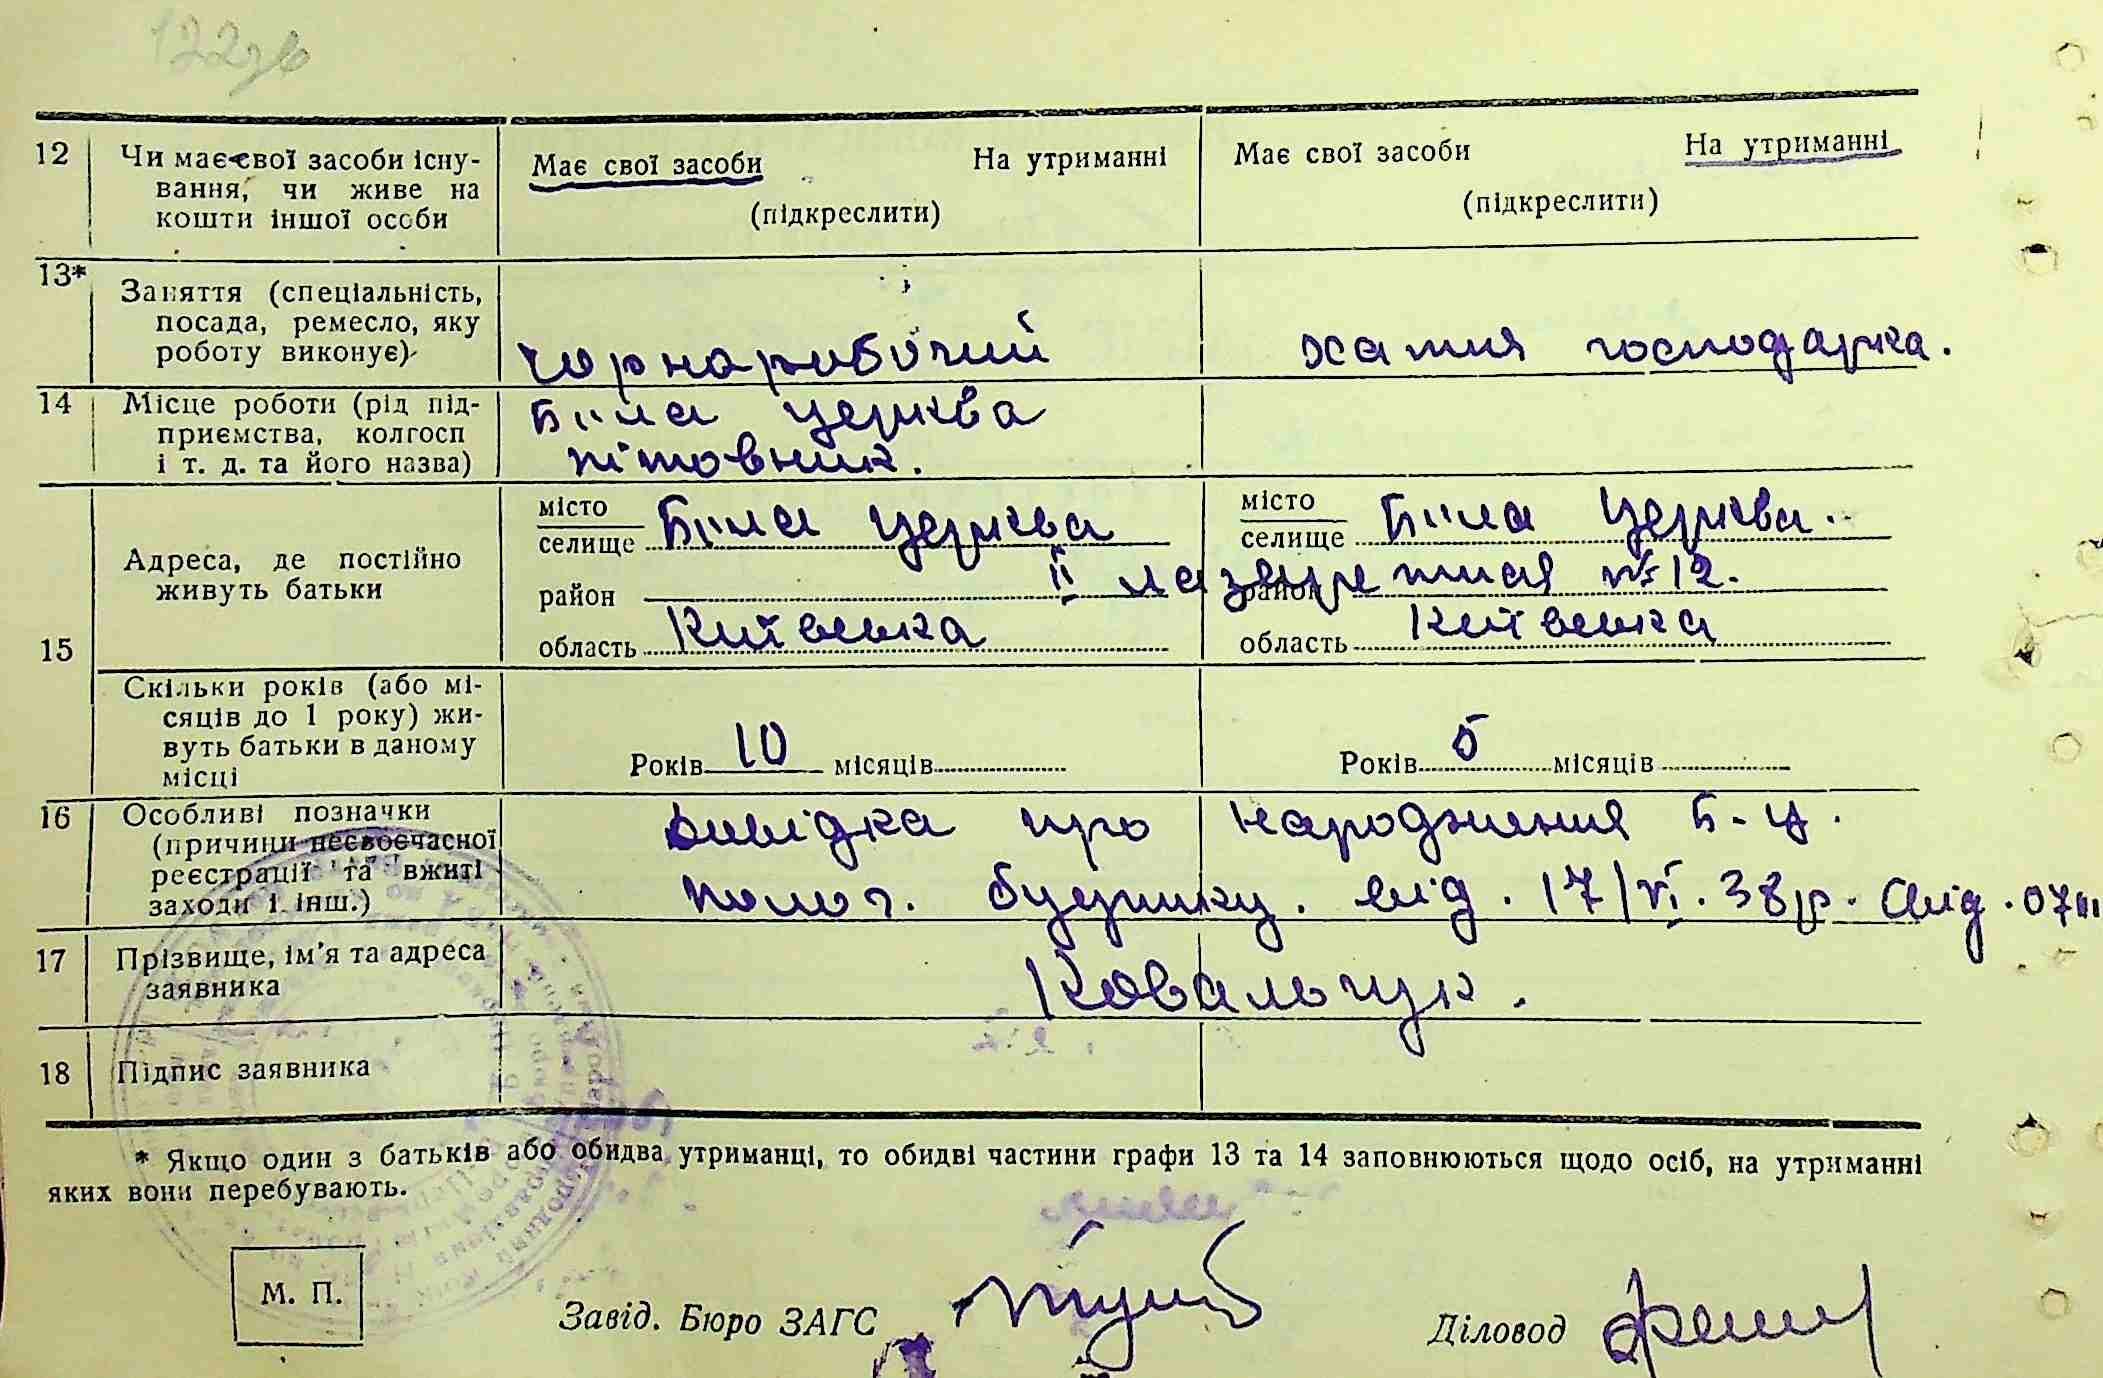 122зв
12 Чи має свої засоби існу-
вання, чи живе на
кошти іншої особи
Має свої засоби На утриманні
(підкреслити)
Має свої засоби На утриманні
(підкреслити)
13* Заняття (спеціальність,
посада, ремесло, яку
роботу виконує)
чорнаробочий
хатня господарка.
14 Місце роботи (рід під-
приємства, колгосп
і т. д. та його назва)
Біла церква
пітовник.
15 Адреса, де постійно
живуть батьки
місто
селище Біла церква
район
область Київська
місто
селище Біла церква
II лазаретная № 12.
район
область Київська
Скільки років (або мі-
сяців до 1 року) жи-
вуть батьки в даному
місці
Років 10 місяців
Років 5 місяців
16 Особливі позначки
(причини несвоєчасної
реєстрації та вжиті
заходи і інш.)
довідка про народження Б-Ц.
полог. будинку. від. 17/VI. 38р.
17 Прізвище, ім'я та адреса
заявника
Ковальчук.
18 Підпис заявника
* Якщо один з батьків або обидва утриманці, то обидві частини графи 13 та 14 заповнюються щодо осіб, на утриманні
яких вони перебувають.
М. П.
Завід. Бюро ЗАГС
Діловод